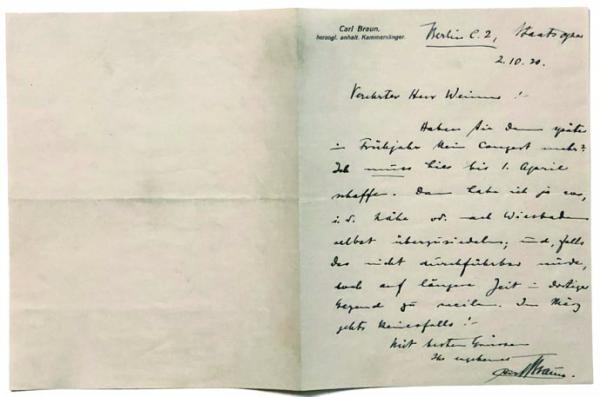 Carl Braun.
herzogl. anhalt. Kammersänger.
Berlin C. 2, Staatsoper
2.10.20.
Verehrter Herr
Haben Sie denn später
im Frühjahr kein Conzert mehr?
Ich muss hier bis 1. April
schaffen. Dann habe ich ja vor,
i. d. Nähe od. nach Wiesbaden
selbst überzusiedeln; und, falls
das nicht durchführbar würde,
doch auf längere Zeit in dortiger
Gegend zu weilen. Im März
gehts keinesfalls!
Mit besten Grüssen
Ihr ergebener
Carl Braun.